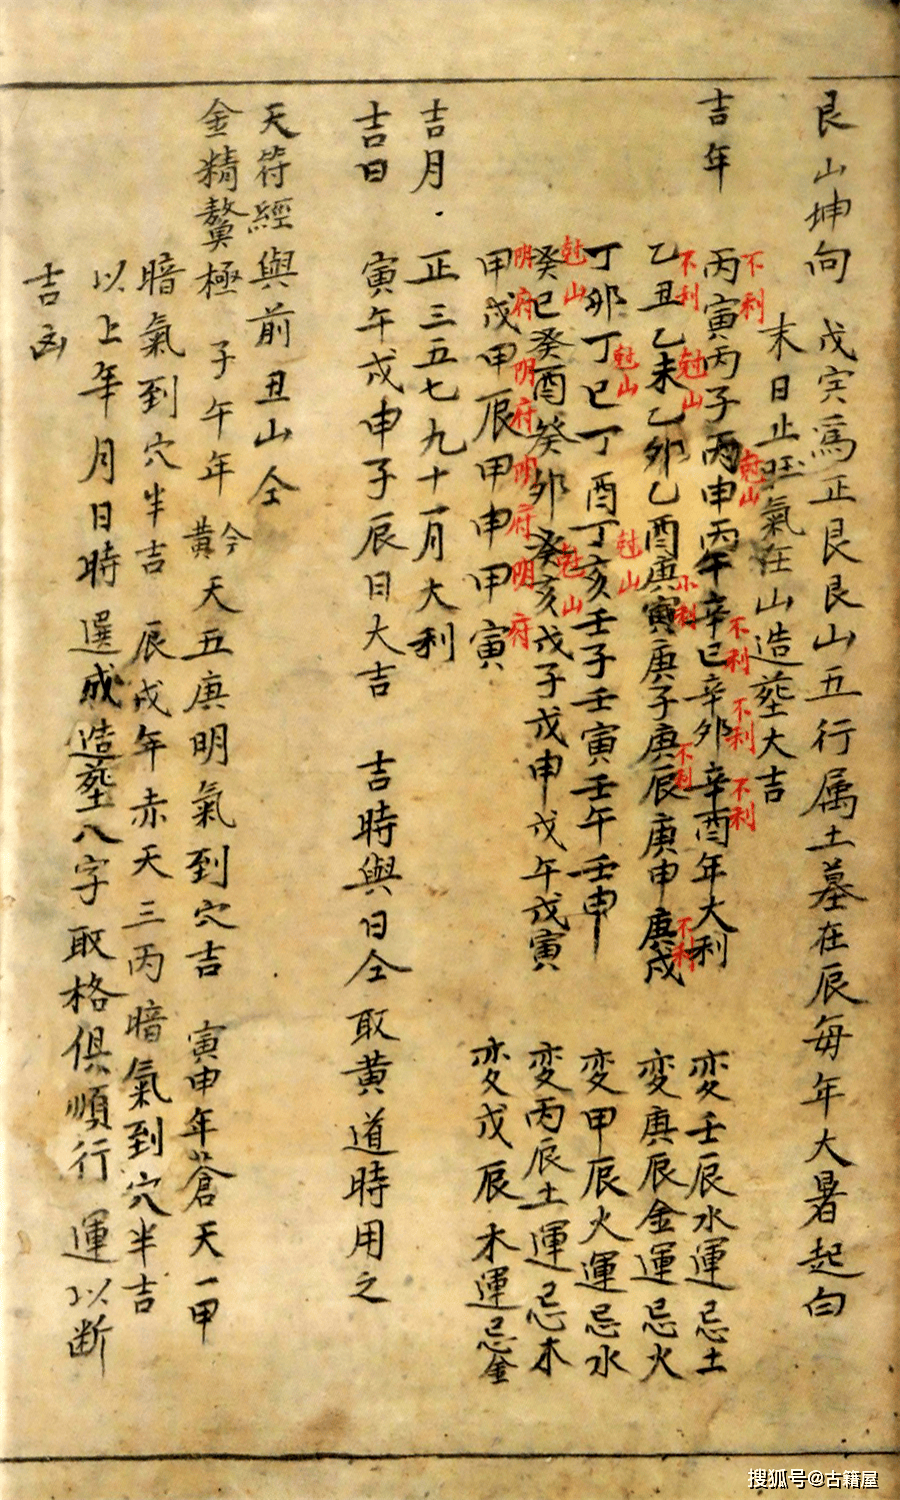 艮山坤向 戊寅爲正艮艮山五行属土墓在辰每年大暑起白
末日止旺氣在山造葬大吉
吉年 丙寅丙子丙申丙午辛巳辛卯辛酉年大利 变壬辰水運忌土
不利 尅山 不利 不利 不利
乙丑乙未乙卯乙酉庚寅庚子庚辰庚申庚戌 变庚辰金運忌火
不利 尅山 小利 不利 不利
丁卯丁巳丁酉丁亥壬子壬寅壬午壬申 变甲辰火運忌水
尅山 尅山
癸巳癸酉癸卯癸亥戊子戊申戊午戊寅 变丙辰土運忌木
尅山 尅山
甲戌甲辰甲申甲寅 变戊辰木運忌金
阴府 阴府 阴府 阴府
吉月·正三五七九十一月大利
吉日 寅午戌申子辰日大吉 吉時與日仝取黄道時用之
天符經與前丑山仝
金精鰲極 子午年黅天五庚明氣到穴吉 寅申年蒼天一甲
暗氣到穴半吉 辰戌年赤天三丙暗氣到穴半吉
以上年月日時選成造葬八字取格俱順行運以断
吉凶
搜狐号@古籍屋